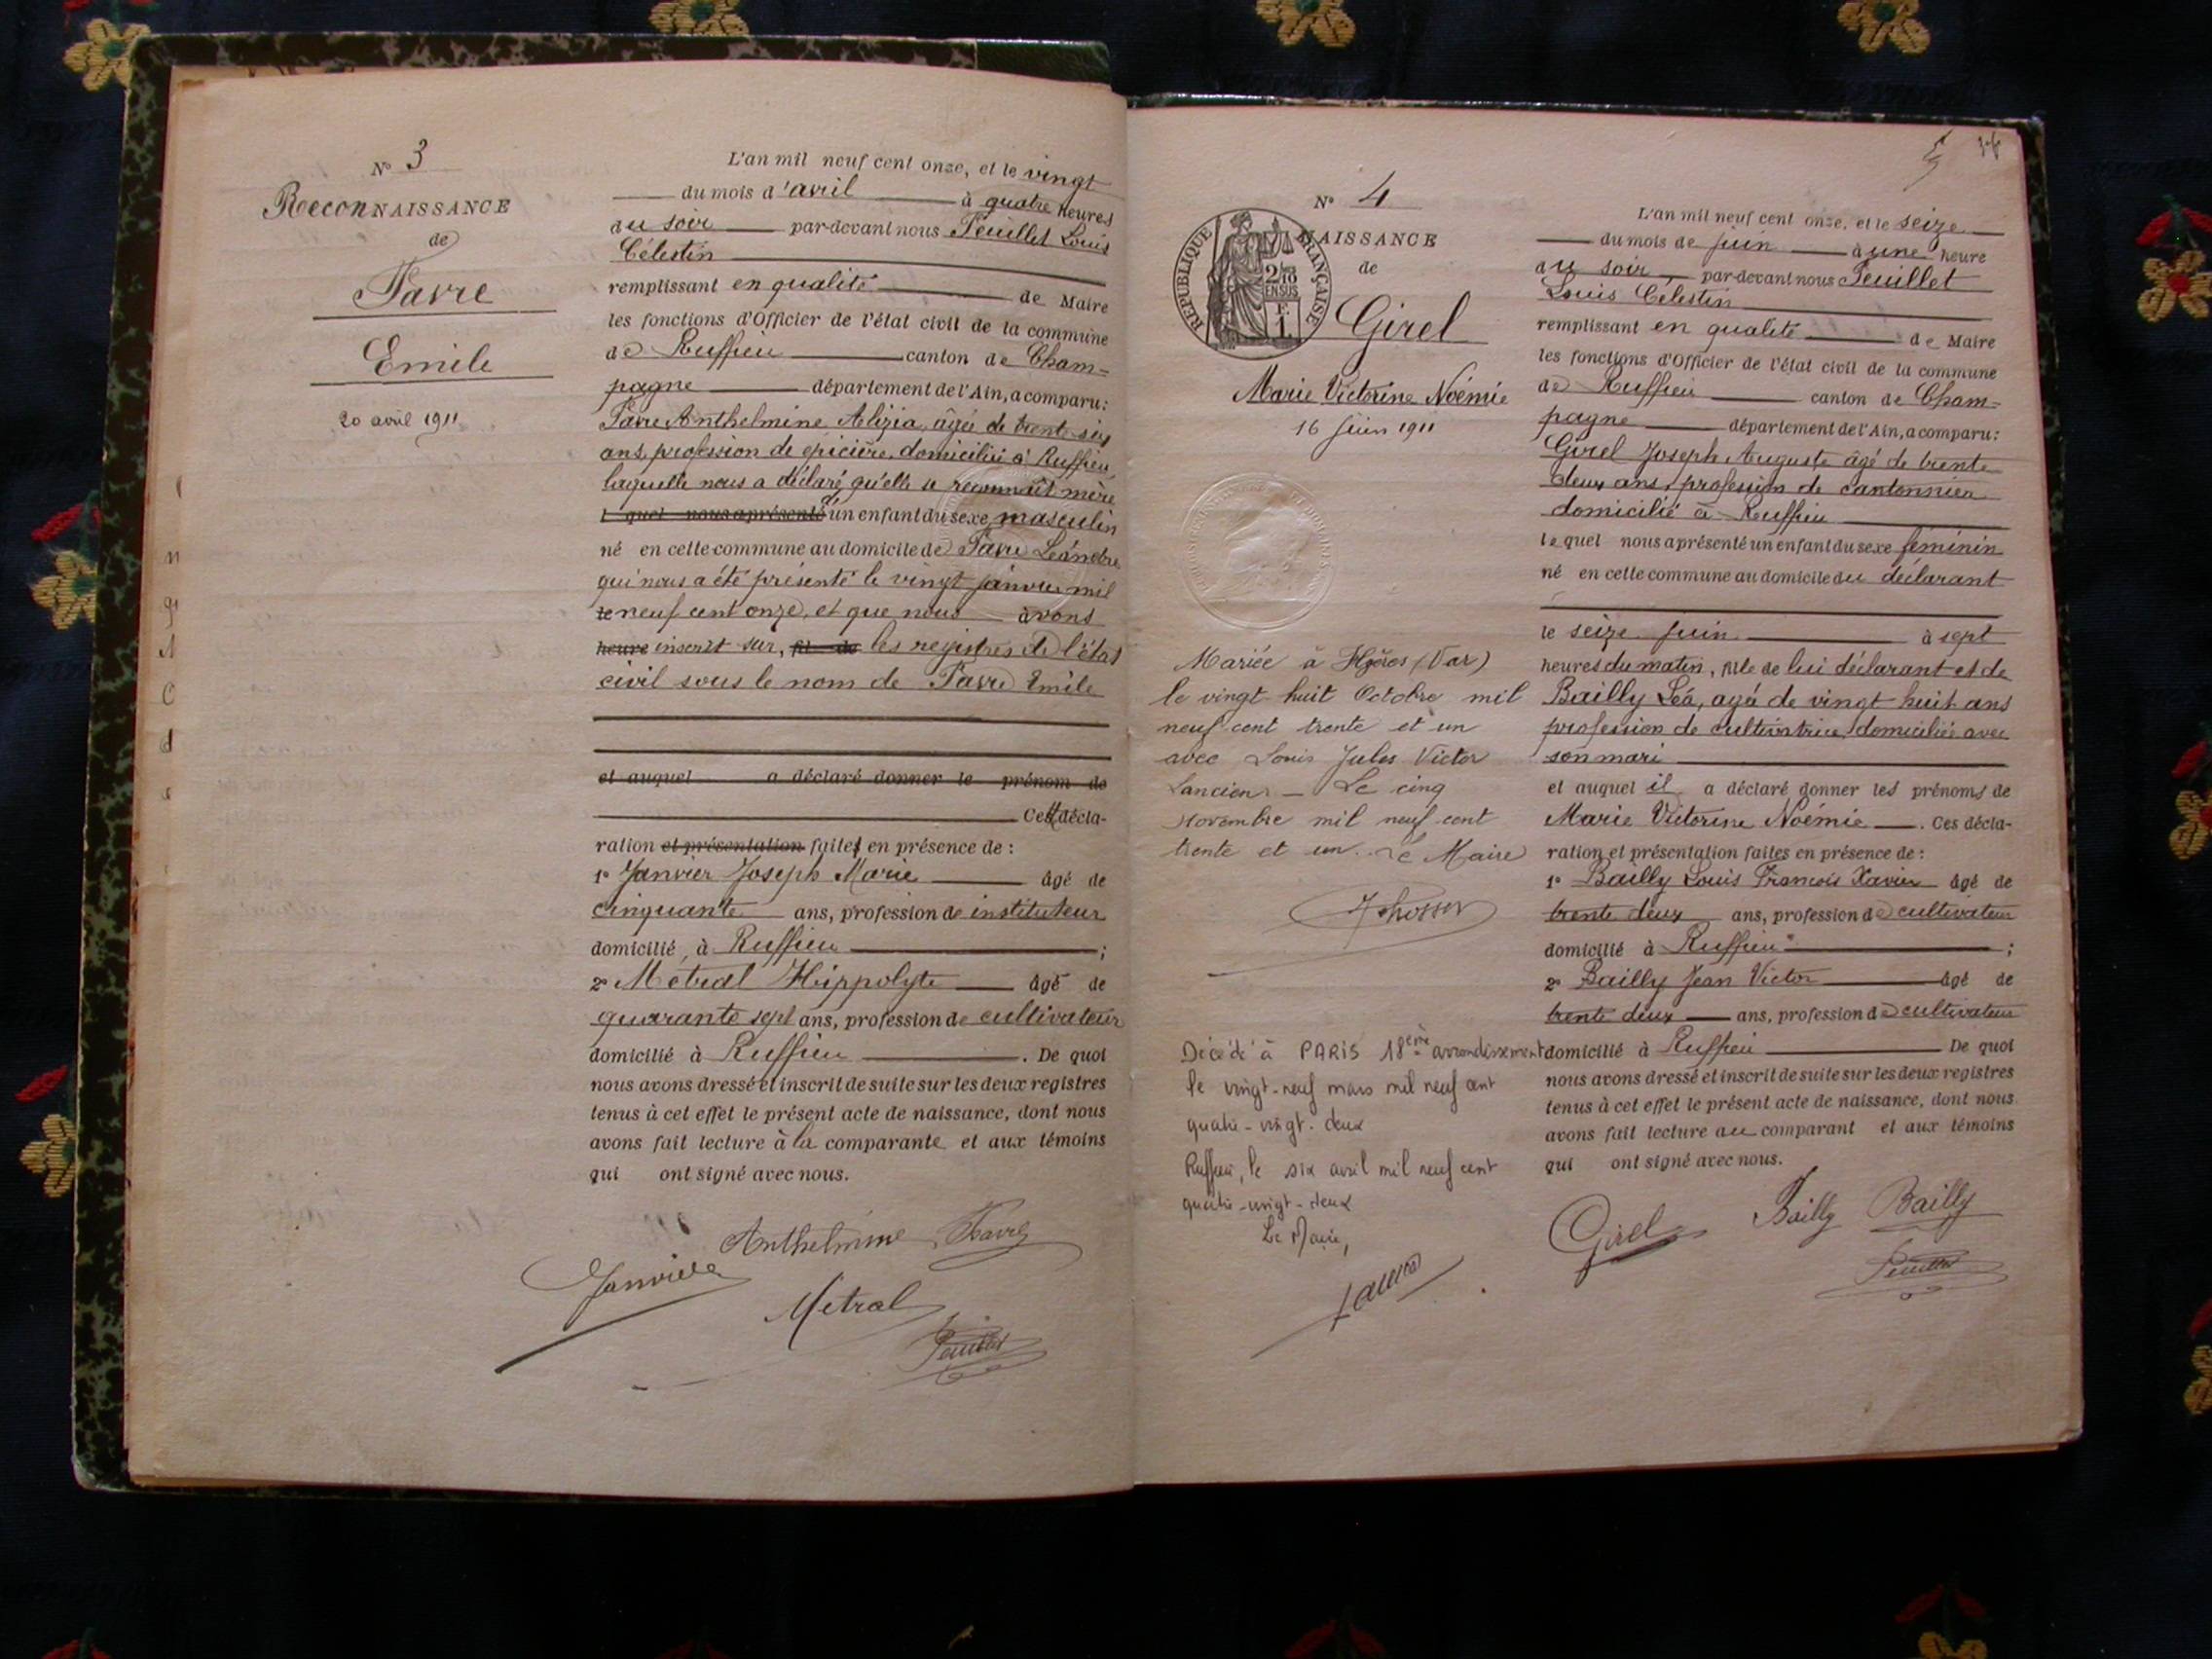 N° 3
RECONNAISSANCE
de
Favre
Emile
20 avril 1911
L'an mil neuf cent onze, et le vingt
du mois d'avril à quatre heures
du soir par-devant nous Feuillet Louis
Célestin
remplissant en qualité de Maire
les fonctions d'Officier de l'état civil de la commune
de Ruffieu canton de Cham=
pagne département de l'Ain, a comparu:
Favre Anthelmine Alizia, âgée de trente-six
ans, profession de épicière, domiciliée à Ruffieu
laquelle nous a déclaré qu'elle se reconnaît mère
lequel nous a présenté d'un enfant du sexe masculin
né en cette commune au domicile de Favre Léandre
qui nous a été présenté le vingt janvier mil
le neuf cent onze, et que nous avons
heure inscrit sur, les registres de l'état
civil sous le nom de Favre Emile
et auquel a déclaré donner le prénom de
Cette décla-
ration et présentation faites en présence de :
1° Janvier Joseph Marie âgé de
cinquante ans, profession de instituteur
domicilié, à Ruffieu ;
2° Métral Hippolyte âgé de
quarante sept ans, profession de cultivateur
domicilié à Ruffieu . De quoi
nous avons dressé et inscrit de suite sur les deux registres
tenus à cet effet le présent acte de naissance, dont nous
avons fait lecture à la comparante et aux témoins
qui ont signé avec nous.
Anthelmine Favre
Janvier
Métral
Feuillet
N° 4
NAISSANCE
de
RÉPUBLIQUE FRANÇAISE
2/10
EN SUS
F.
1.
Girel
Marie Victorine Noémie
16 juin 1911
Mariée à Hyères (Var)
le vingt-huit Octobre mil
neuf cent trente et un
avec Louis Jules Victor
Lancien — Le cinq
Novembre mil neuf cent
trente et un. Le Maire
Décédé à PARIS 18ème arrondissement
le vingt-neuf mars mil neuf cent
quatre-vingt-deux
Ruffieu, le six avril mil neuf cent
quatre-vingt-deux
Le Maire,
L'an mil neuf cent onze, et le seize
du mois de juin à une heure
du soir par-devant nous Feuillet
Louis Célestin
remplissant en qualité de Maire
les fonctions d'Officier de l'état civil de la commune
de Ruffieu canton de Cham=
pagne département de l'Ain, a comparu:
Girel Joseph Auguste âgé de trente
deux ans, profession de cantonnier
domicilié à Ruffieu
lequel nous a présenté un enfant du sexe féminin
né en cette commune au domicile du déclarant
le seize juin à sept
heures du matin, fille de lui déclarant et de
Bailly Léa, agée de vingt huit ans
profession de cultivatrice, domiciliée avec
son mari
et auquel il a déclaré donner les prénoms de
Marie Victorine Noémie . Ces décla-
ration et présentation faites en présence de :
1° Bailly Louis François Xavier âgé de
trente deux ans, profession de cultivateur
domicilié à Ruffieu ;
2° Bailly Jean Victor âgé de
trente deux ans, profession de cultivateur
domicilié à Ruffieu De quoi
nous avons dressé et inscrit de suite sur les deux registres
tenus à cet effet le présent acte de naissance, dont nous
avons fait lecture au comparant et aux témoins
qui ont signé avec nous.
Girel Bailly Bailly
Feuillet